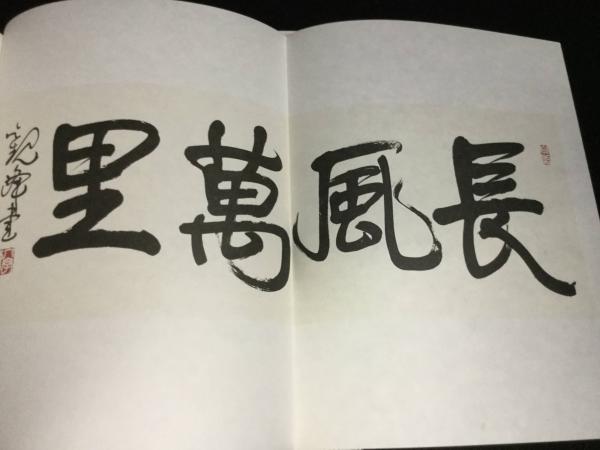 長風萬里
觀峰書